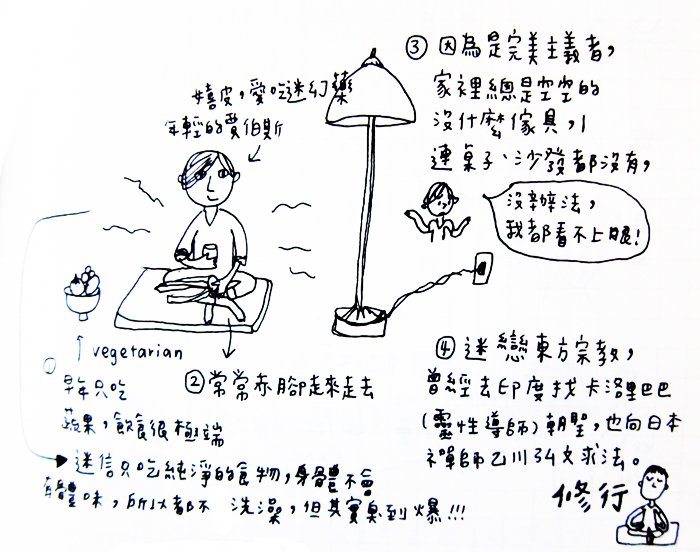 嬉皮，愛吃迷幻藥
年輕的賈伯斯
① 早年只吃
蔬果，飲食很極端
vegetarian
迷信只吃純淨的食物，身體不會
有體味，所以都不洗澡，但其實臭到爆!!!
② 常常赤腳走來走去
③ 因為是完美主義者，
家裡總是空空的
沒什麼傢具，
連桌子、沙發都沒有，
沒辦法，
我都看不上眼！
④ 迷戀東方宗教，
曾經去印度找卡洛里巴巴
(靈性導師)朝聖，也向日本
禪師乙川弘文求法。
修行